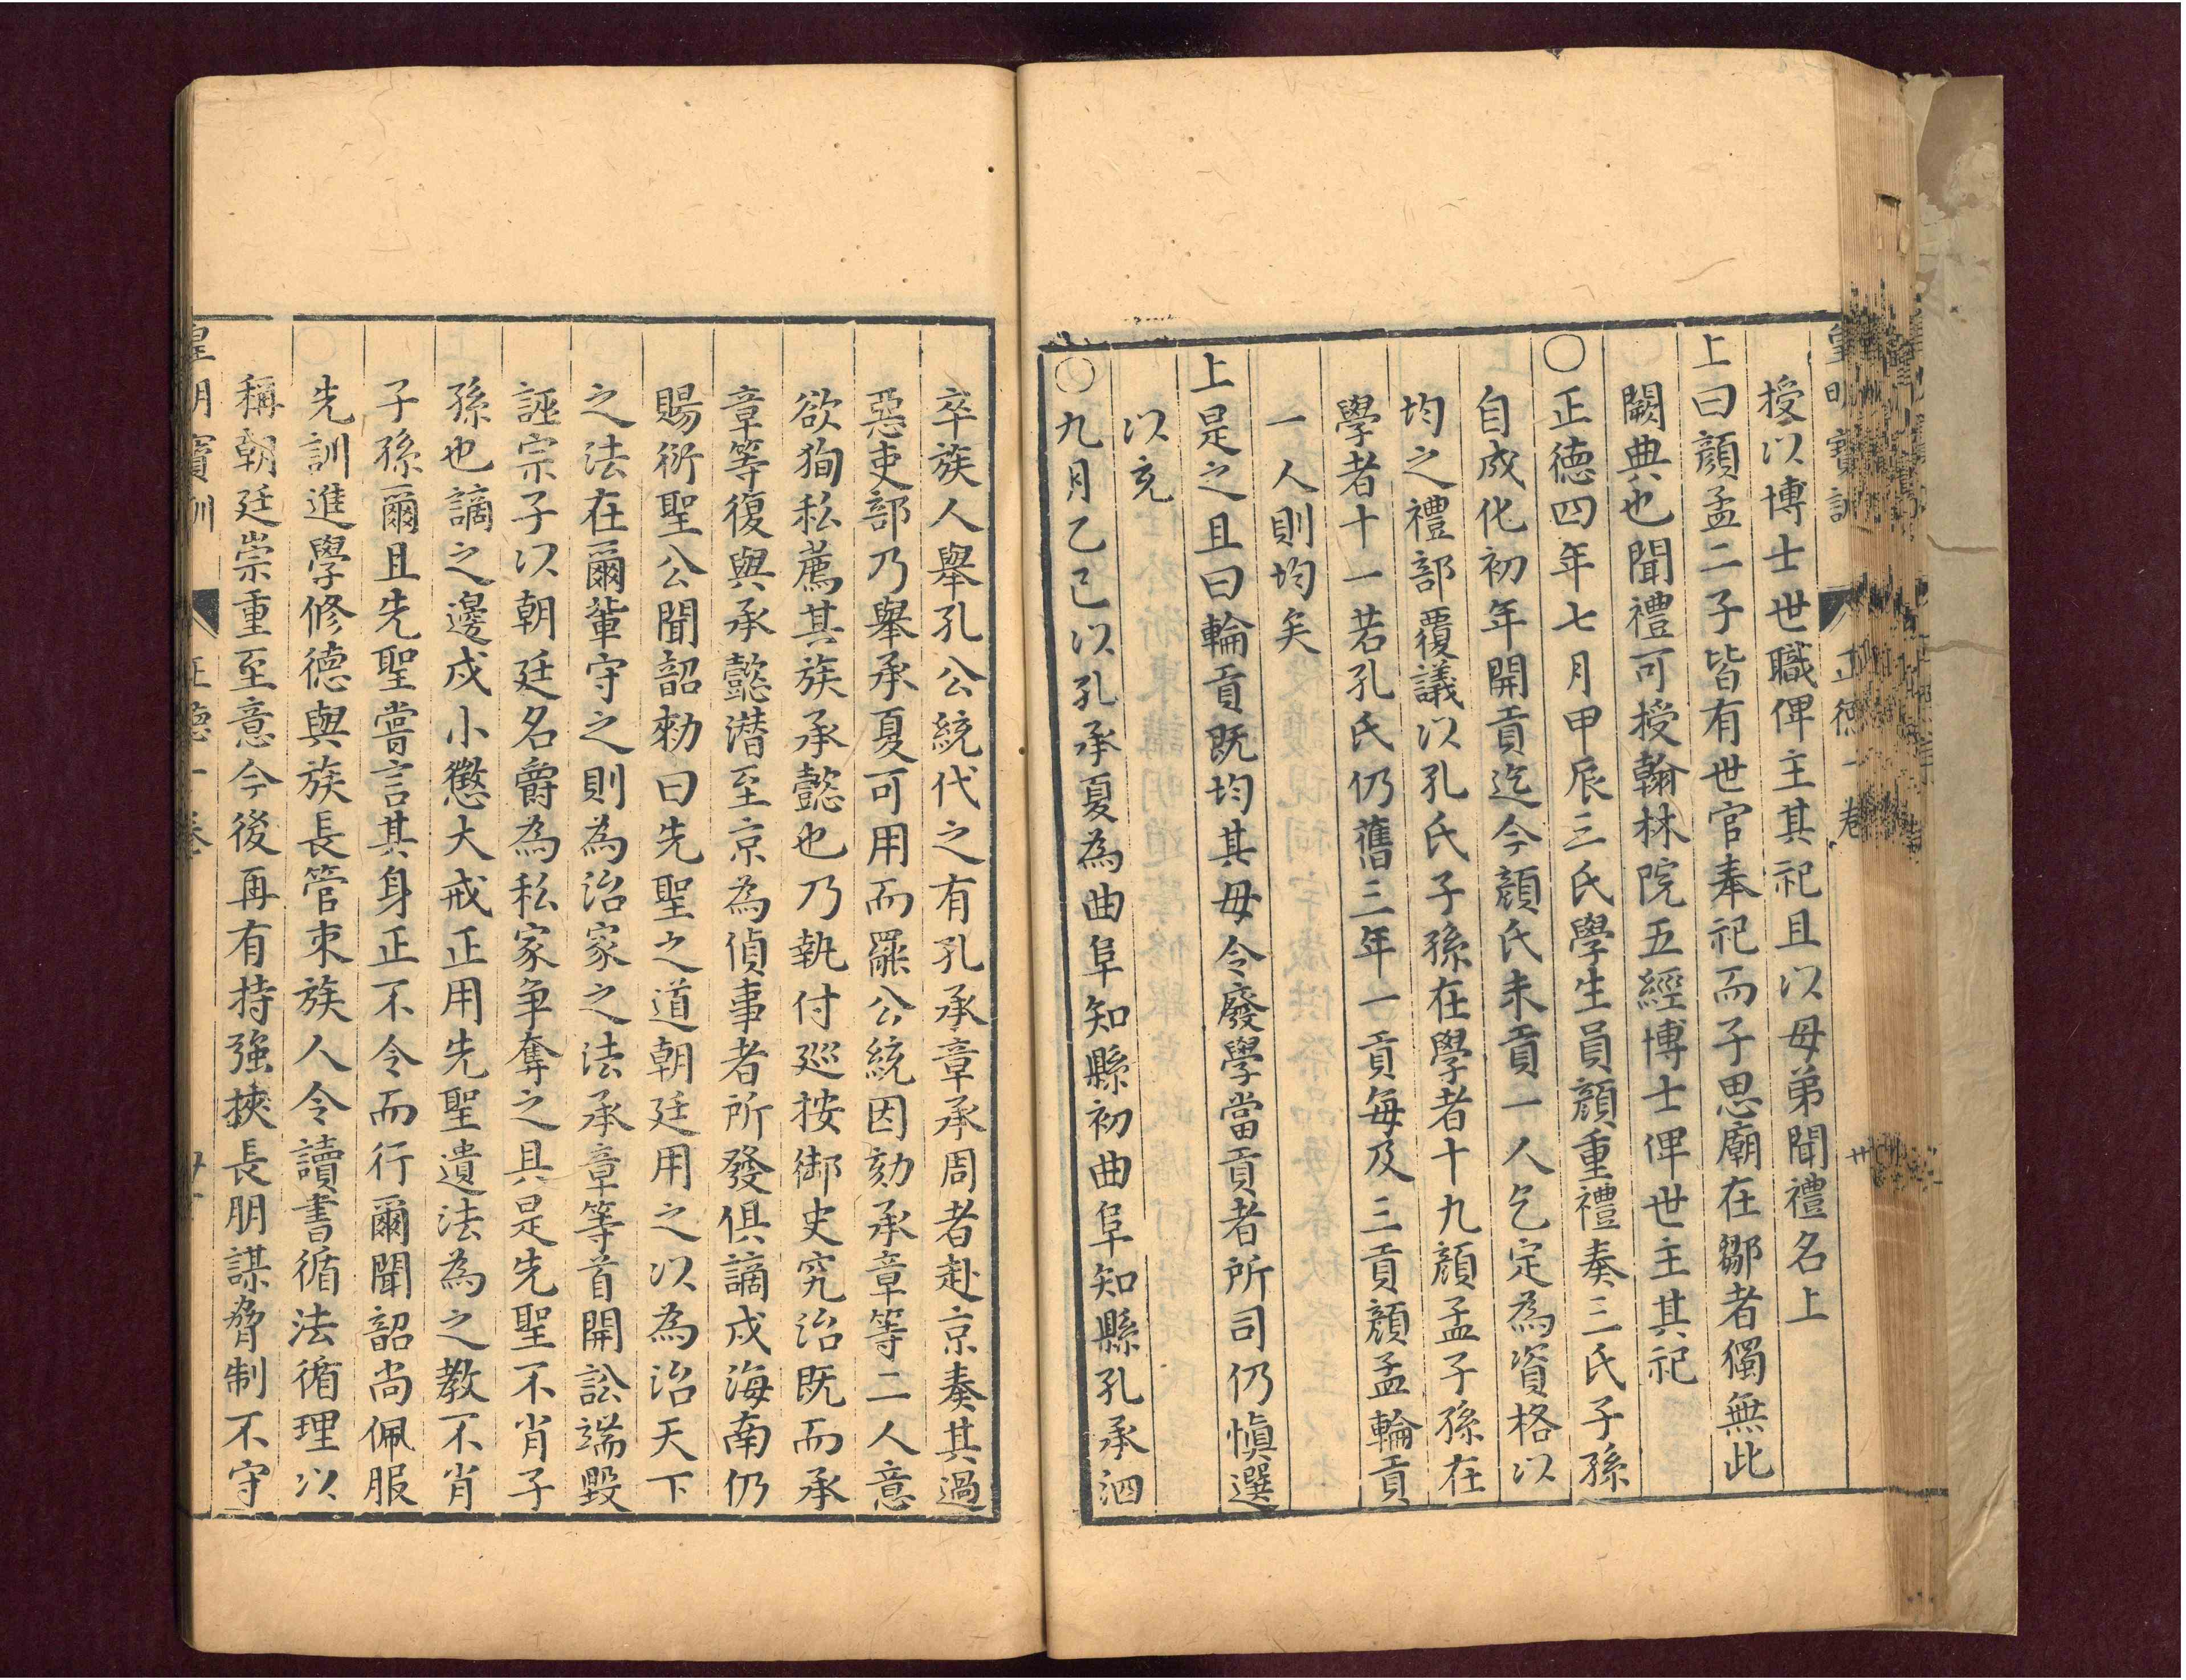 授以博士世職俾主其祀且以母弟聞禮名上
上曰顏孟二子皆有世官奉祀而子思廟在鄒者獨無此
闕典也聞禮可授翰林院五經博士俾世主其祀
○正德四年七月甲辰三氏學生員顏重禮奏三氏子孫
自成化初年開貢迄今顏氏未貢一人乞定為資格以
均之禮部覆議以孔氏子孫在學者十九顏孟子孫在
學者十一若孔氏仍舊三年一貢每及三貢顏孟輪貢
一人則均矣
上是之且曰輪貢既均其毋令廢學當貢者所司仍慎選
以充
○九月乙巳以孔承夏為曲阜知縣初曲阜知縣孔承泗
卒族人舉孔公統代之有孔承章承周者赴京奏其過
惡吏部乃舉承夏可用而罷公統因劾承章等二人意
欲狥私薦其族承懿也乃執付巡按御史究治既而承
章等復與承懿潛至京為偵事者所發俱謫戍海南仍
賜衍聖公聞韶勑曰先聖之道朝廷用之以為治天下
之法在爾輩守之則為治家之法承章等首開訟端毀
誣宗子以朝廷名爵為私家爭奪之具是先聖不肖子
孫也謫之邊戍小懲大戒正用先聖遺法為之教不肖
子孫爾且先聖嘗言其身正不令而行爾聞韶尚佩服
先訓進學修德與族長管束族人令讀書循法循理以
稱朝廷崇重至意今後再有持強挾長朋謀脅制不守
皇明寶訓 正德一卷